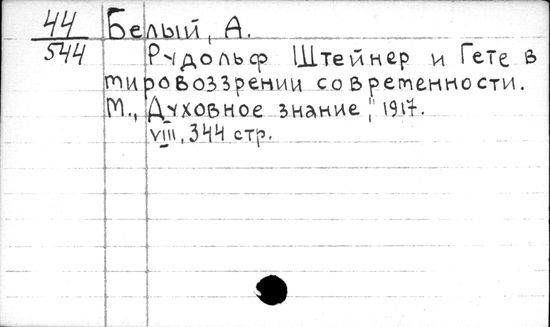 44 Белый, А.
544 Рудольф Штейнер и Гете в
мировоззрении современности.
М., "Духовное знание", 1917.
VIII, 344 стр.